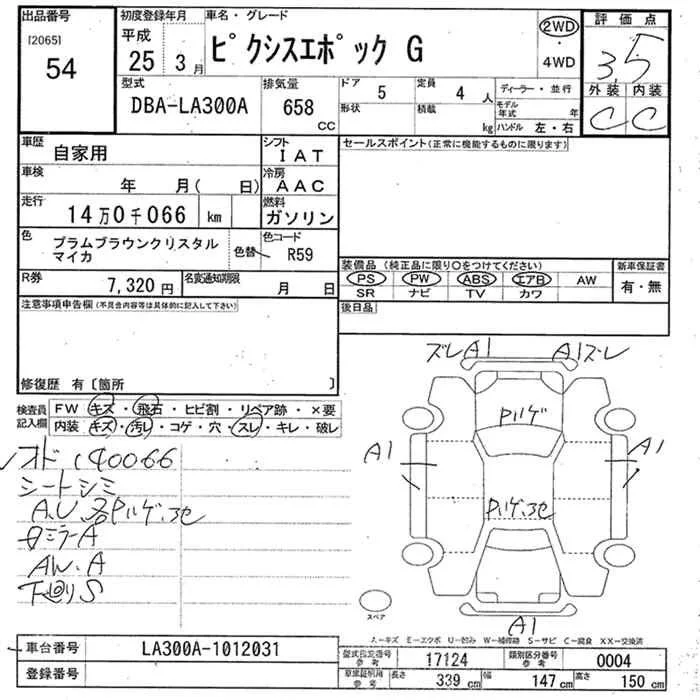 出品番号
[2065]
54
初度登録年月
平成
25 3月
車名・グレード
ピクシスエポック G
2WD
・
4WD
評価点
3.5
外装 内装
C C
型式
DBA-LA300A
排気量
658
cc
ドア
5
形状
定員
4 人
積載
kg
ディーラー・並行
モデル年式 年
ハンドル 左・右
車歴
自家用
シフト
IAT
車検
年 月( 日)
冷房
AAC
走行
14万0千066 km
燃料
ガソリン
色
プラムブラウンクリスタル
マイカ
色替
色コード
R59
R券
7,320円
名変通知期限
月 日
セールスポイント(正常に機能するものに限ります)
装備品(純正品に限り○をつけてください)
PS PW ABS エアB AW
SR ナビ TV カワ
新車保証書
有・無
後日品
注意事項申告欄(不具合内容等は具体的に記入して下さい)
修復歴 有〔箇所 〕
検査員
記入欄
FW キズ・飛石・ヒビ割・リペア跡・×要
内装 キズ・汚レ・コゲ・穴・スレ・キレ・破レ
オド 140066
シートシミ
A.U
ミラーA
AW.A
下廻りS
ズレA1
A1ズレ
A1
A1
A1
スペア
A-キズ E-エクボ U-凹み W-補修跡 S-サビ C-腐食 XX-交換済
車台番号
LA300A-1012031
登録番号
型式指定番号
参考
17124
類別区分番号
参考
0004
車庫証明用
参考
長さ
339 cm
幅
147 cm
高さ
150 cm